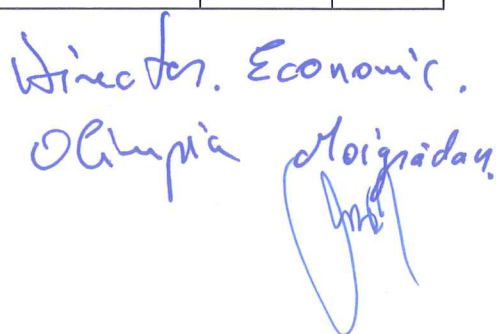 Director. Economic.
Olimpia Moigrădan